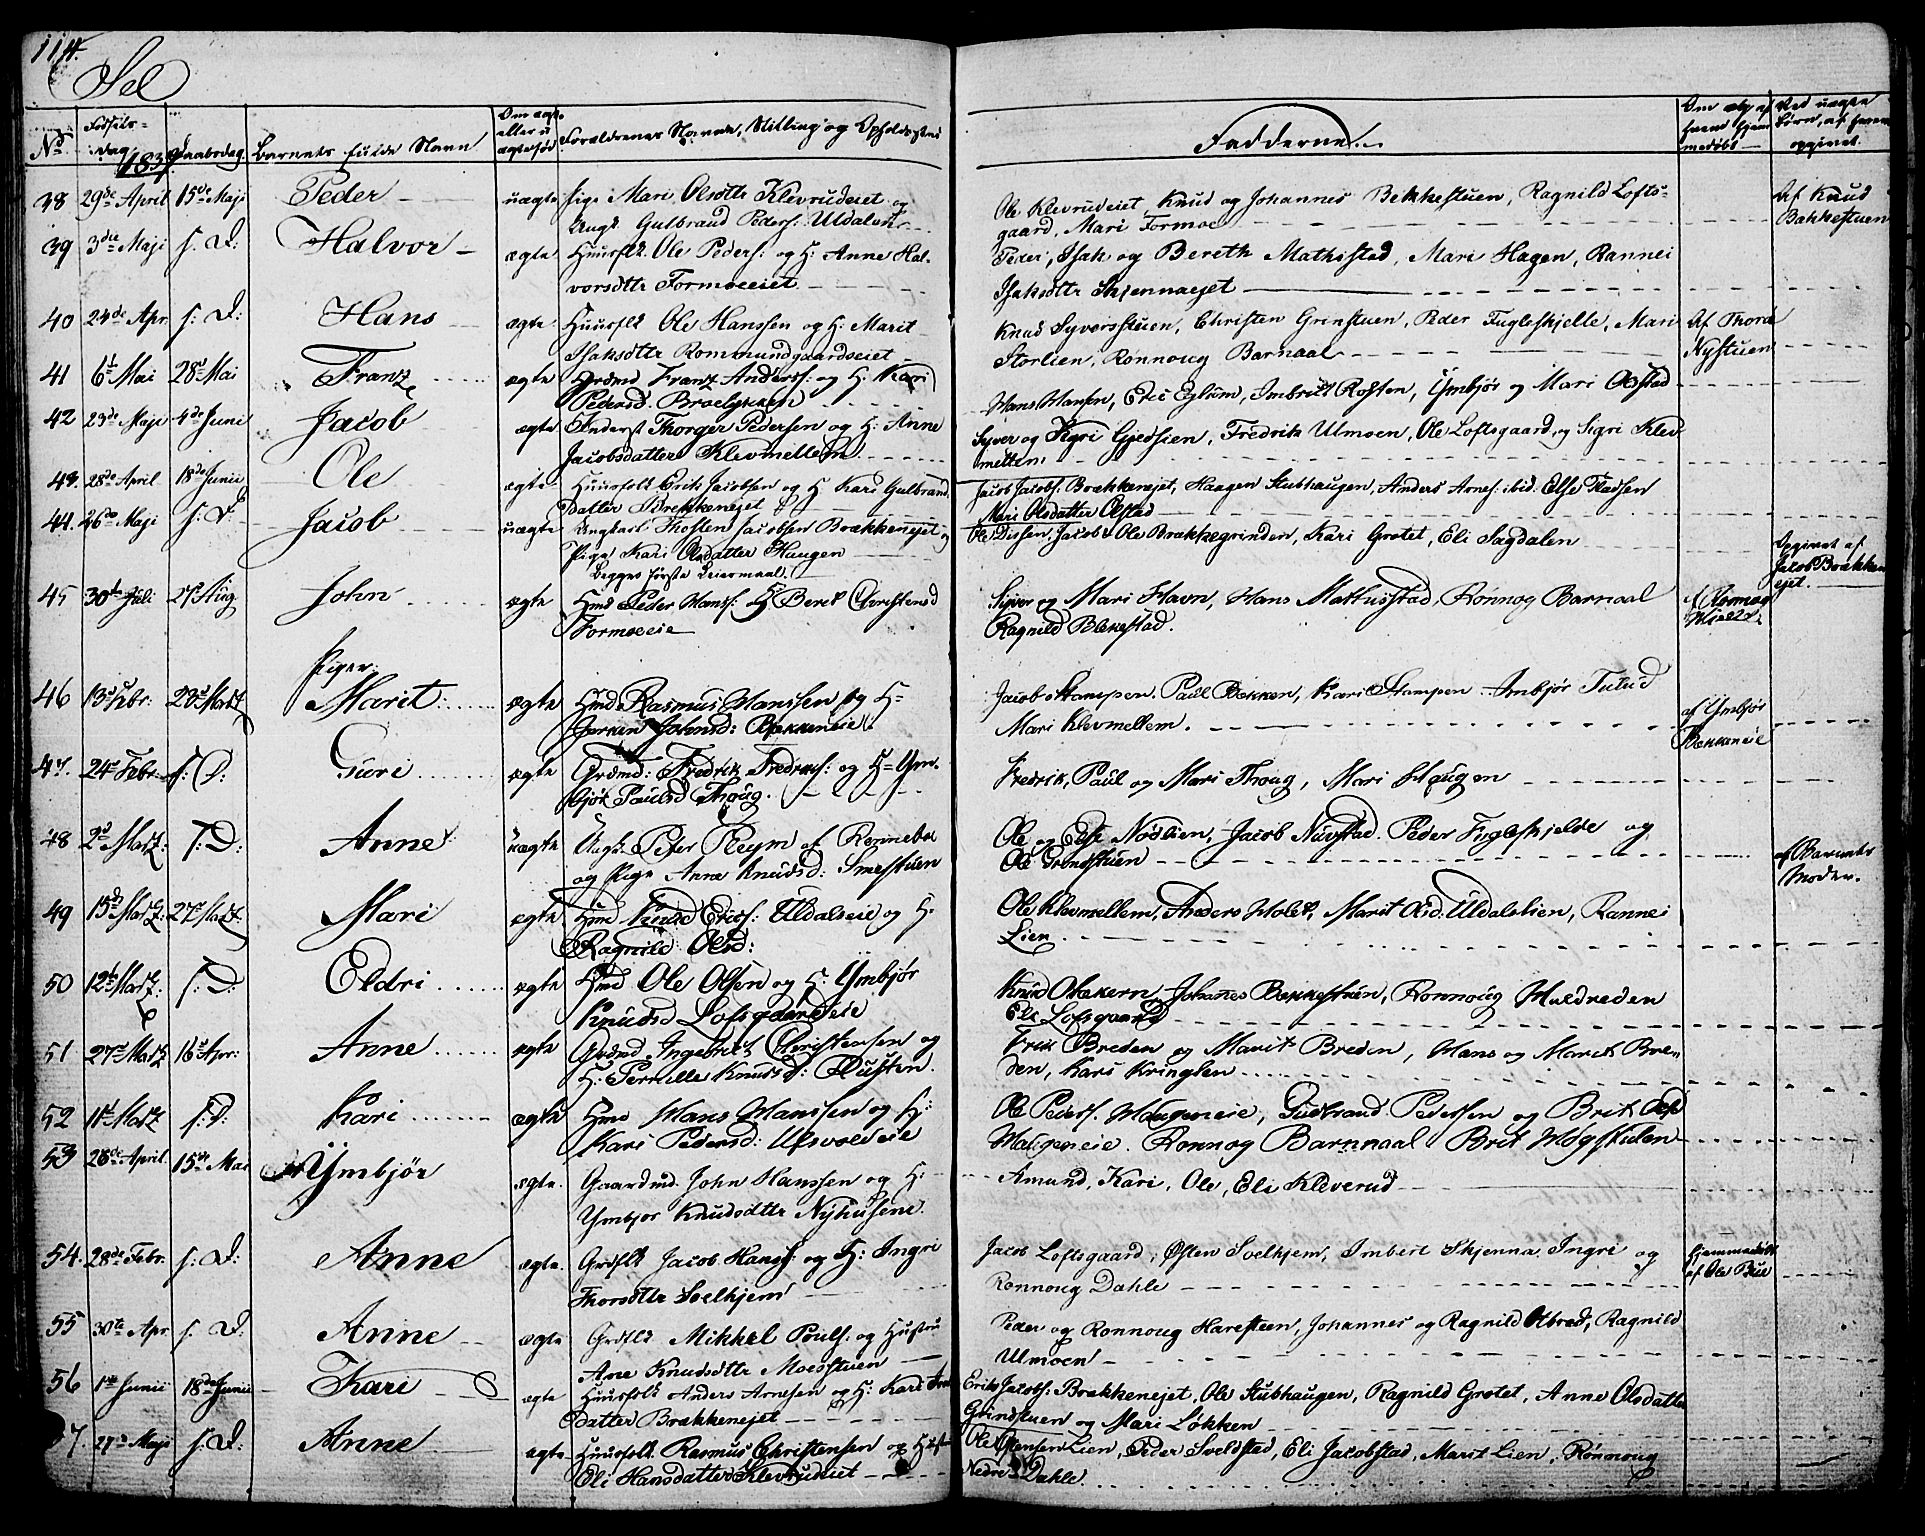 114.
Sel
No
Fødsels-
dag
1837
Daabsdag
Barnets fulde Navn
Om ægte
eller u
ægtefød
Forældrenes Navne, Stilling og Opholdssted
Fadderne.
Om
hjem
medøbt
Ved uægte
Børn, af hvem
opgivet.
38 29de April 15de Maji Peder uægte Pige Mari Olsdtr Klevrudeiet og
Ungk Gulbrand Peders: Uldalen
Ole Klevrudeiet, Knud og Johannes Bekkestuen, Ragnild Lofts-
gaard, Mari Formoe
Af Knud
Bakkestuen
39 3die Maji s. D: Halvor ægte Huusflk Ole Peders: og H: Anne Hal-
vorsdtr Formoeeiet
Peder, Isak og Bereth Mathistad, Mari Hagen, Rannei
Isaksdtr Skjennaejet
40 24de Apr. s: D: Hans ægte Huusflk Ole Hanssen og H: Marit
Isaksdtr Rommundgaardseiet
Knud Syversstuen, Christen Grinstuen, Peder Fugleskjelle, Mari
Storlien, Rønnoug Barnaal
Af Thord
Nystuen
41 6t Mai 28d Mai Franz ægte Grdmd Franz Anderss: og H: Kari
Pedersd. Braelykken
Hans Hansen, Eric Eglum, Imbrict Rosten, Ymbjør og Mari Olstad
42 23de Maji 4de Junii Jacob ægte Inderst Thorger Pedersen og H: Anne
Jacobsdatter Klevmellem
Syver og Sigri Gjedsien, Fredrik Ulmoen, Ole Loftsgaard, og Sigri Klev
mellem.
43. 28de April 18de Junii Ole ægte Huusfolk Erik Jacobsen og H Kari Gulbrand
datter Brekkenejet
Jacob Jacobs: Brækkenejet, Haagen Stubhaugen, Anders Arnes: ibid: Else Kladsen
Mari Olsdatter Olstad
44. 26de Maji s: D: Jacob uægte Ungkarl Thosten Jacobsen Brækkenejet og
Pige Kari Olsdatter Haugen
Begges første Leiermaal.
Ole Dissen, Jacob & Ole Brækkegrinden, Kari Grotet, Eli Sagdalen
Opgivet af
Jacob Brækken
ejet.
45 30te Juli 27d Aug John ægte Hmd Peder Hans: og Beret Christensd
Formoeeie
Syver og Mari Havn, Hans Mathisstad, Ronnog Barnaal
Ragnild Bækestad.
Piger.
46 13d Febr. 23d Martz Marit ægte Hmd Rasmus Hanssen og H:
Jorken Johnsd: Bækkeneie
Jacob Stampen, Paul Bækken, Kari Stampen, Imbjør Tulud
Mari Klevmellem.
af Ymbjør
Bækkeneie
47. 24d Febr. s: D: Guri ægte Grdmd: Fredrik Fredriks: og H: Ym-
bjør Paulsd Thoug.
Fredrik, Paul og Mari Thoug, Mari Haugen
48 2d Martz s: D: Anne uægte Ungk Peter Rheym af Rennebo
og Pige Anne Knudsd: Smestuen
Ole og Else Nordlien, Jacob Nuvstad. Peder Fugleskjelde og
Ole Grindstuen
af Barnets
Moder.
49 15d Martz 27d Martz Mari ægte Hmd Knud Erics: Uldalseie og H:
Ragnild Olsd:
Ole Klevmellem, Anders Holet, Marit Olsd. Uldalslien, Rannei
Lien
50 12t Martz s: D: Eldri ægte Hmd Ole Olsen og H: Ymbjør
Knudsd Lofsgaardeie
Knud Olekern, Johanes Bækkestuen, Ronnoug Huldreden
Eli Lofsgaard
51 27d Martz 16d Apr: Anne ægte Grdmd Ingebrict Christensen og
H: Pernille Knudsd: Rusten.
Erik Breden og Marit Breden, Hans og Marit Bre-
den, Kari Kringlen
52 11t Martz s: D: Kari ægte Hmd Hans Hanssen og H:
Kari Pedersd: Ulsvoldeie
Ole Peders. Haugeneie, Gudbrand Pederssen og Brit
Haugeneie. Ronnog Barnnaal Brit Høgstulen
53 28de April 15de Mai Ymbjør ægte. Gaardmd. John Hanssen og H:
Ymbjør Knudsdtr Nyhusene.
Amund, Kari, Ole, Eli Kleverud
54. 28de Febr. s: D: Anne ægte Grdflk Jacob Hanss: og H: Ingri
Thorsdtr Selhjem
Jacob Loftsgaard, Østen Selhjem, Imbert Skjenna, Ingri og
Ronnoug Dahle
Hjemmedøbt
af Ole Bue
55 30te Apr. s: D: Anne ægte Grdflk Mikkel Pouls: og Hustru
Ane Knudsdtr Moesstuen
Peder og Ronnoug Harestuen, Johannes og Ragnild Olbred, Ragnild
Ulmoen
56 1ste Junii 18de Junii Kari ægte Huusfolk Anders Arnesen og H: Kari
datter Brækkenejet
Erik Jacobs: Brækkenejet, Ole Stubhaugen, Ragnild Grotet, Anne Olsdatter
Grindstuen og Mari Løkken
57 27de Maji s: D: Anne ægte Huusfolk Rasmus Christensen og
Eli Hansdatter Klevrudeiet
Ole Estensen Lien, Peder Sveldstad, Eli Jacobstad, Marit Lien, Rønnoug
Nedre Dahle.